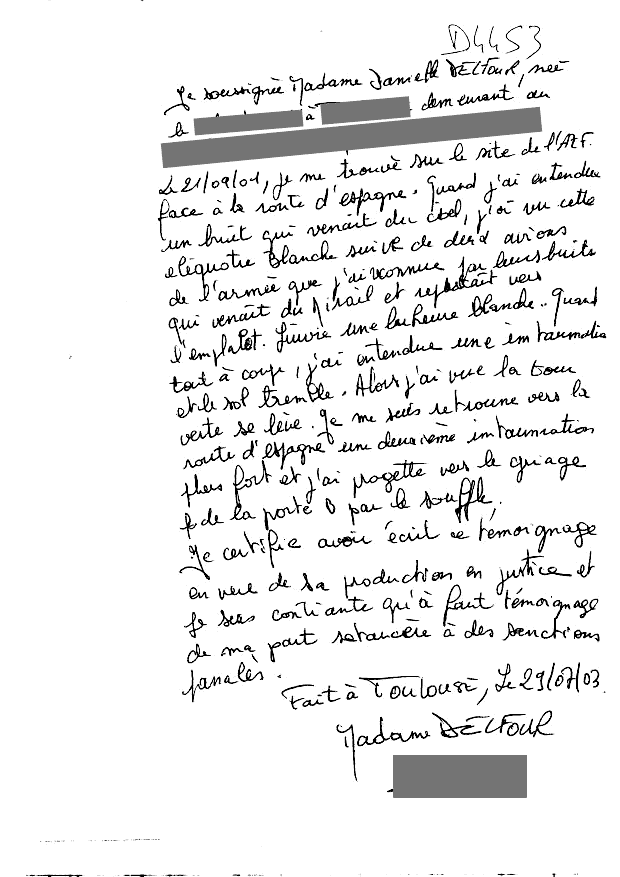 D4453
Je soussignée Madame Danielle DELFOUR, née
le à demeurant au
Le 21/09/01, je me trouvé sur le site de l'AZF.
face à la route d'espagne. Quand j'ai entendue
un bruit qui venait du ciel, j'ai vu cette
blanche suivre de deux avions
de l'armée que j'ai reconnue par leurs bruits
qui venait du Mirail et repartait vers
l'emplalot. Suivie une lueure blanche.. Quand
tout à coup, j'ai entendue une
et le sol tremble. Alors j'ai vue la tour
verte se lève. Je me suis retrouve vers la
route d'espagne une deuxième
plus fort et j'ai progetté vers le
de la porte par le souffle.
Je certifie avoir écrit ce témoignage
en vue de sa production en justice et
je suis qu'à faut témoignage
de ma part à des sanctions
Fait à Toulouse, Le 29/07/03.
Madame DELFOUR